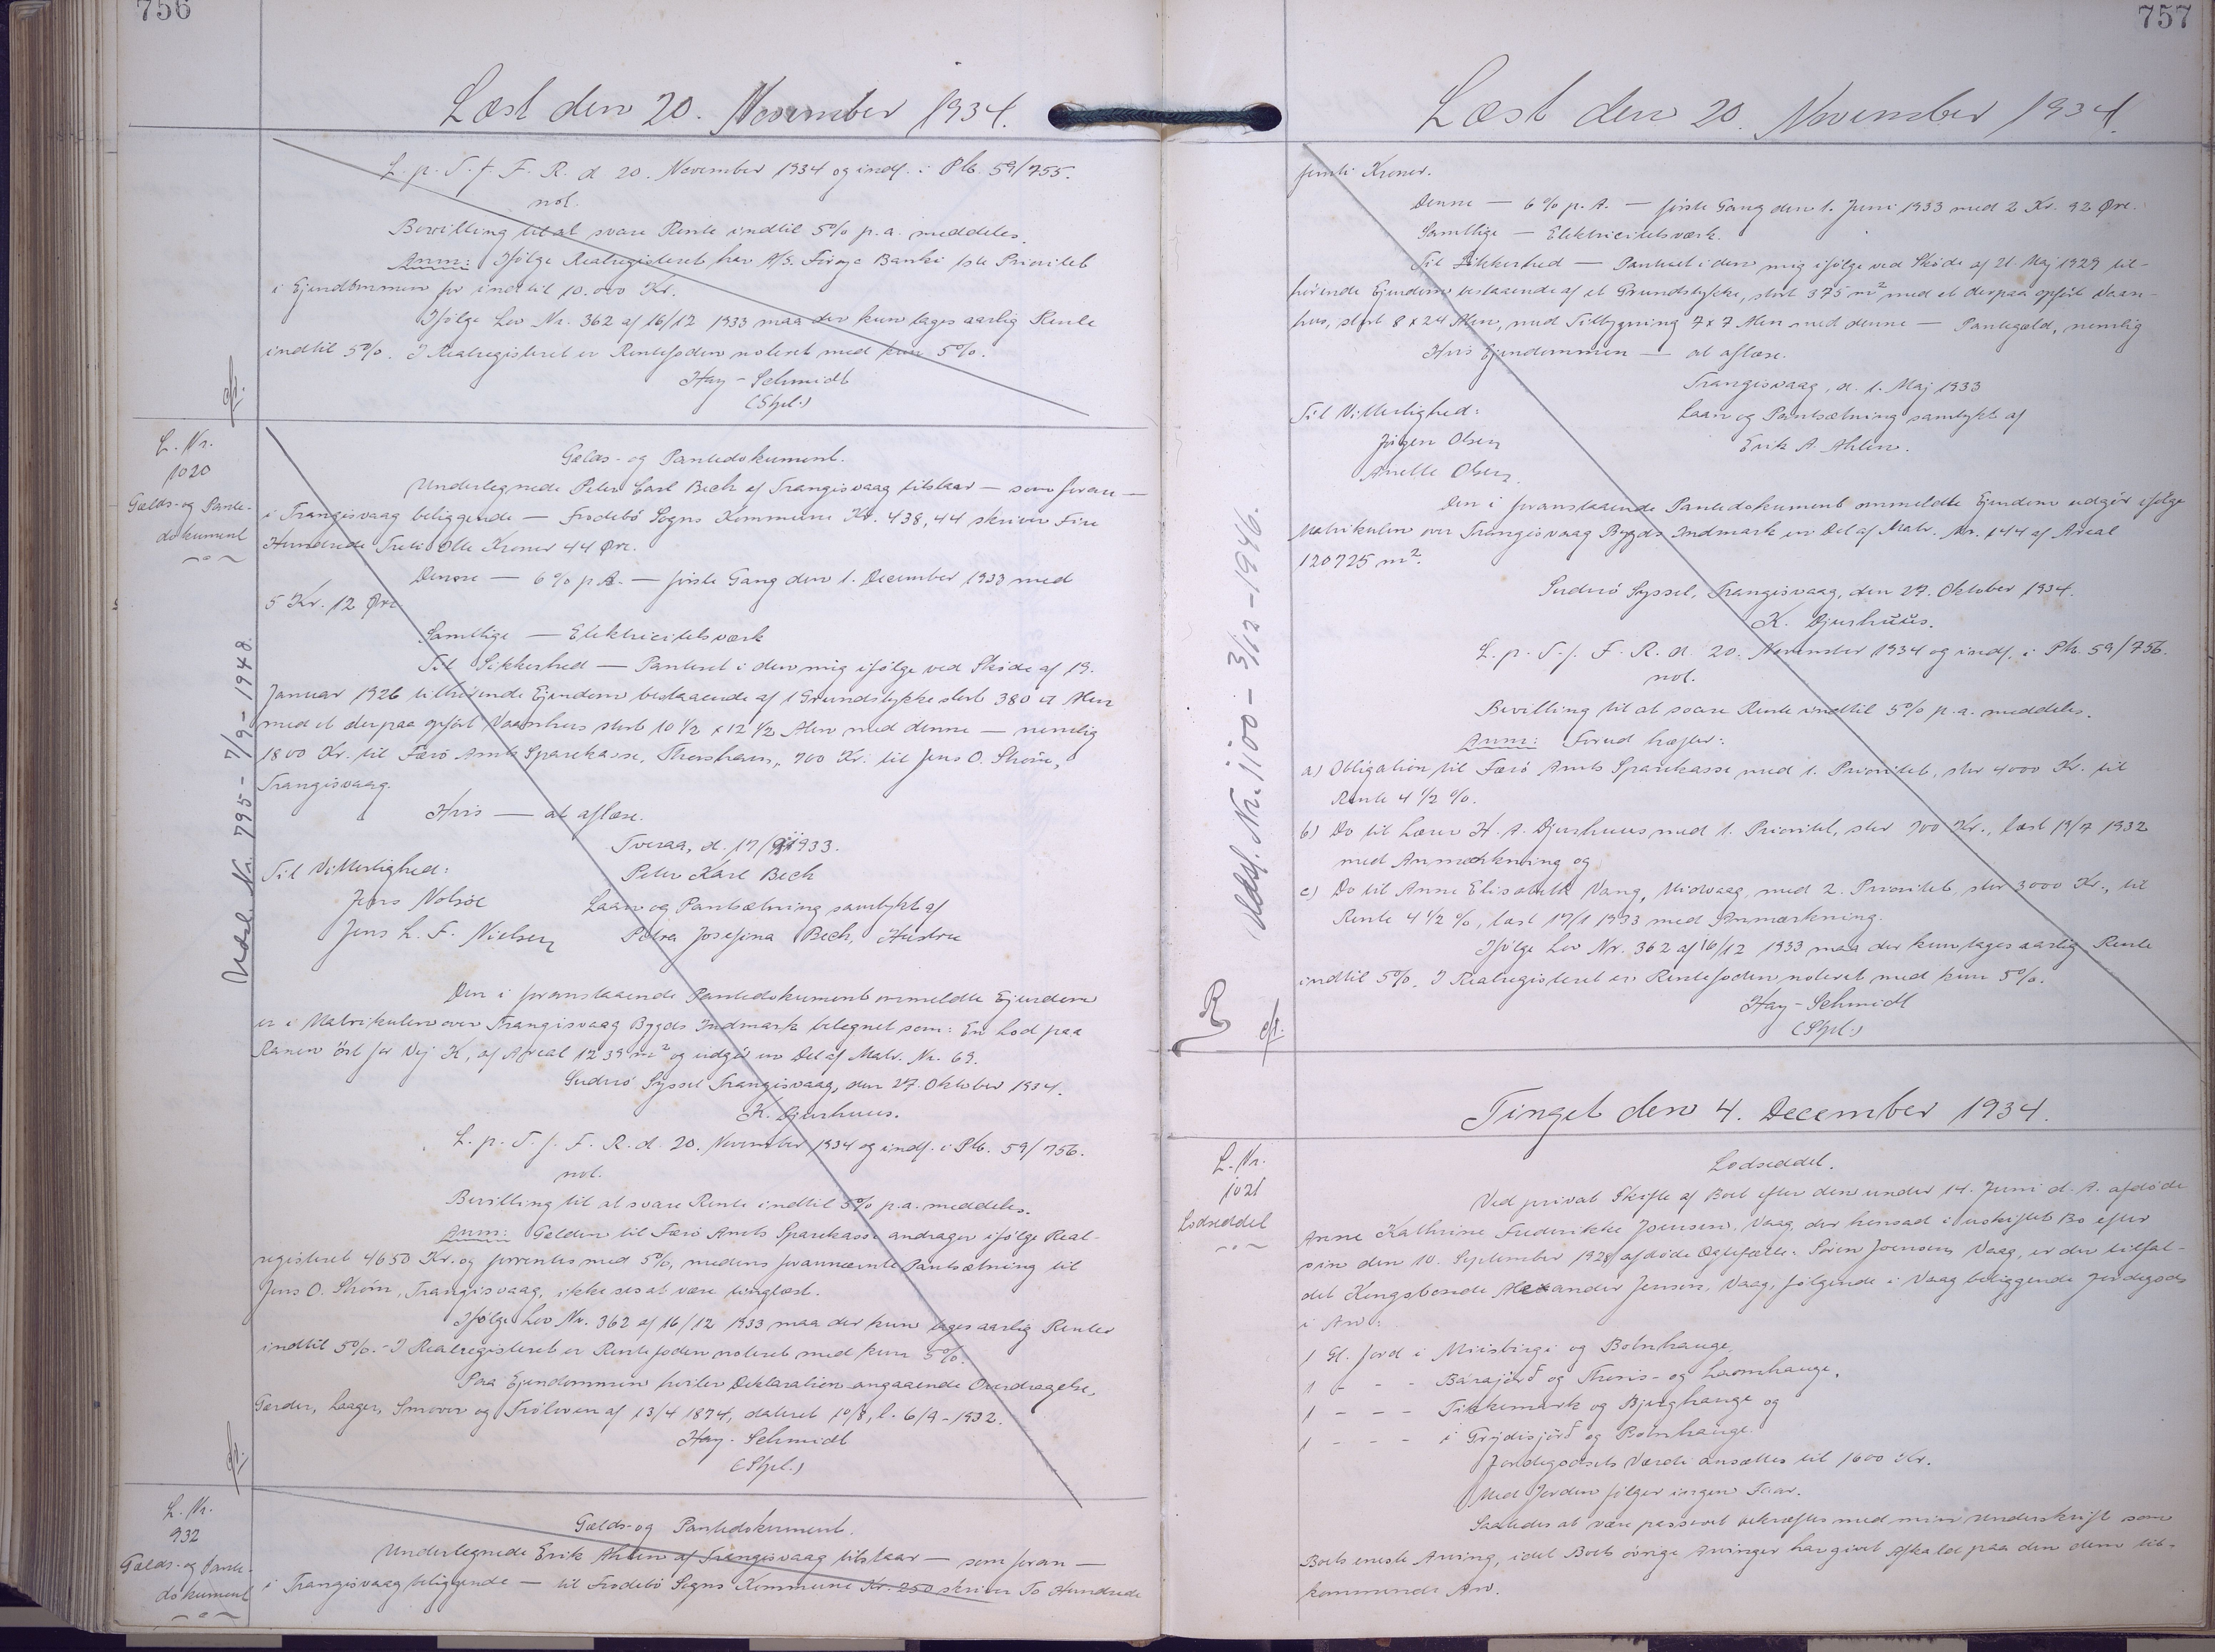 756
Læst den 20. November 1934.
L. p. T. f. F. R. d. 20. November 1934 og indf. i Pb. 59/755.
not.
Bevilling til at svare Rente indtil 5% p.a. meddeles.
Anm: Ifølge Realregisteret har A/S. Føroya Banki 1ste Prioritet
i Ejendommen for indtil 10.000 Kr.
Ifølge Lov Nr. 362 af 16/12 1933 maa der kun tages aarlig Rente
indtil 5%. I Realregisteret er Rentefoden noteret med kun 5%.
Hay-Schmidt
(Stpl.)
cfr.
L. Nr.
1020
Gælds- og Pante-
dokument
Gælds- og Pantedokument.
Underlegnede Peter Carl Bech af Trangisvaag tilstaar — som foran —
i Trangisvaag beliggende — Frodebö Sogns Kommune Kr. 438,44 skriver Fire
Hundrede Treti Otte Kroner 44 Øre.
Denne — 6% p.A. — første Gang den 1. December 1933 med
5 Kr. 12 Øre
Samtlige — Elektricitetsværk
Til Sikkerhed — Panteret i den mig ifölge ved Sköde af 19.
Januar 1926 tilhörende Ejendom bestaaende af 1 Grundstykke stort 380 □ Alen
med et derpaa opfört Vaanhus stort 10 1/2 x 12 1/2 Alen med denne — nemlig
1800 Kr. til Færö Amts Sparekasse, Thorshavn, 700 Kr. til Jens O. Ström,
Trangisvaag.
Hvis — at aflæse.
Tveraa, d. 17/ 1933.
Til Vitterlighed:
Peter Karl Bech
Jens Nolsöe
Laan og Pantsætning samtykt af
Jens L. F. Nielsen
Petra Josefina Bech, Hustru
Den i foranstaaende Pantedokument ommeldte Ejendom
er i Matrikulen over Trangisvaag Bygds Indmark betegnet som: En Lod paa
Ranen öst for Vej K, af Areal 1239 m² og udgör en Del af Matr. Nr. 69.
Suderö Syssel Trangisvaag, den 27. Oktober 1934.
K. Djurhuus.
L. p. T. f. F. R. d. 20. November 1934 og indf. i Pb. 59/756.
not.
Bevilling til at svare Rente indtil 5% p.a. meddeles.
Anm: Gælden til Færö Amts Sparekasse andrager ifölge Real-
registeret 4650 Kr. og forrentes med 5%, medens forannævnte Pantsætning til
Jens O. Ström, Trangisvaag, ikke ses at være tinglæst.
Ifölge Lov Nr. 362 af 16/12 1933 maa der kun tages aarlig Renter
indtil 5%. - I Realregisteret er Rentefoden noteret med kun 5%.
Paa Ejendommen hviler Deklaration angaaende Overdragelse,
Gærder, Laager, Smover og Tröloven af 13/4 1874, dateret 10/8, l. 6/9-1932.
Hay-Schmidt
(Stpl.)
cfr.
Udsl. Nr. 795 - 7/9 - 1948.
L. Nr.
932
Gælds- og Pante-
dokument
Gælds- og Pantedokument.
Underlegnede Erik Ahlen af Trangisvaag tilstaar — som foran —
i Trangisvaag beliggende — til Frodebö Sogns Kommune Kr. 250 skriver To Hundrede
757
Læst den 20. November 1934.
femti Kroner.
Denne — 6% p. A. — förste Gang den 1. Juni 1933 med 2 Kr. 92 Øre.
Samtlige — Elektricitetsværk.
Til Sikkerhed — Panteret i den mig ifölge ved Sköde af 21. Maj 1929 til-
hörende Ejendom bestaaende af et Grundstykke, stort 375 m² med et derpaa opfört Vaan-
hus, stort 8 x 24 Alen, med Tilbygning 7 x 7 Alen med denne — Pantegæld, nemlig
Hvis Ejendommen — at aflæse.
Trangisvaag, d. 1. Maj 1933
Til Vitterlighed:
Laan og Pantsætning samtykt af
Jörgen Olsen
Erik A. Ahlen.
Anette Olsen
Den i foranstaaende Pantedokument ommeldte Ejendom udgör ifölge
Matrikulen over Trangisvaag Bygds Indmark en Del af Matr. Nr. 144 af Areal
120725 m².
Suderö Syssel, Trangisvaag, den 27. Oktober 1934.
K. Djurhuus.
L. p. T. f. F. R. d. 20. November 1934 og indf. i Pb. 59/756.
not.
Bevilling til at svare Rente indtil 5% p.a. meddeles.
Anm: Forud hæfter:
a) Obligation til Færö Amts Sparekasse med 1. Prioritet, stor 4000 Kr. til
Rente 4 1/2 %.
b) Do til Lærer H. A. Djurhuus med 1. Prioritet, stor 700 Kr., læst 19/7 1932
med Anmærkning og
c) Do til Anne Elisabeth Vang, Midvaag, med 2. Prioritet, stor 3000 Kr., til
Rente 4 1/2 %, læst 17/1 1933 med Anmærkning.
Ifölge Lov Nr. 362 af 16/12 1933 maa der kun tages aarlig Rente
indtil 5%. I Realregisteret er Rentefoden noteret med kun 5%.
Hay-Schmidt
(Stpl.)
cfr.
Udsl. Nr. 1100 - 3/12 - 1946.
Tinget den 4. December 1934.
L. Nr.
1021
Lodseddel
Lodseddel.
Ved privat Skifte af Boet efter den under 14. Juni d. A. afdöde
Anne Kathrine Frederikke Joensen, Vaag, der hensad i uskiftet Bo efter
sin den 10. September 1928 afdöde Ægtefælle: Sören Joensen, Vaag, er der tilfal-
det Kongsbonde Alexander Jensen, Vaag, fölgende i Vaag beliggende Jordegods
i Arv:
1 Gl. Jord i Miisbirgi og Botnhauge,
1 - - - Bárajörð og Thoris- og Laomhauge,
1 - - - Tinkemark og Bjerghauge og
1 - - - i Frýdisjörð og Botnhauge.
Jordegodsets Værdi ansættes til 1600 Kr.
Med Jorden fölger ingen Faar.
Saaledes at være passeret bekræftes med min Underskrift som
Boets eneste Arving, idet Boets övrige Arvinger har givet Afkald paa den dem til-
kommende Arv.